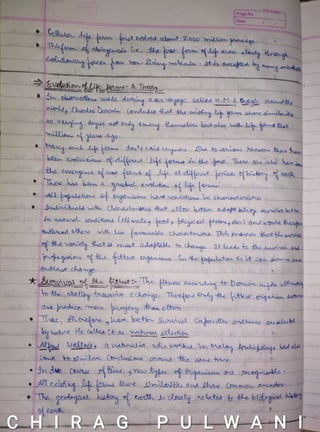 Page No.
Date
• Cellular life form first evolved about 2000 million years ago.
• This form of abiogenesis i.e. the first form of life arose slowly through
evolutionary forces from non-living molecules. It is accepted by many scientists
⇒ Evolution of Life forms - A Theory
• In observations made during a sea voyage called H.M.S Beagle round the
world, Charles Darwin concluded that the existing life forms share similarities
to varying degrees not only among themselves but also with life forms that
millions of years ago.
• Many such life forms don't exist anymore. Due to various reasons there have
been extinctions of different life forms in the past. There are also been
the emergence of new forms of life at different periods of history of earth
• There has been a gradual evolution of life forms
• All populations of organisms have variations in characteristics
• Individuals with characteristics that allow better adaptability survive better
in natural conditions (climates, food, physical factors, etc.) and would therefore
outbreed others with less favourable characteristics. This ensures that the
of the variety that is most adaptable to change. It leads to the survival and
propagation of the fittest organisms in the population as it can survive and
outlast change.
★ Survival of the fittest :- The fitness according to Darwin refers ultimately
to the ability to survive change. Therefore only the fittest organism survive
and produce more progeny than others.
• These therefore, have better survival capacities and hence are selected
by nature. He called it as natural selection
• Alfred Wallace, a naturalist who worked in Malay Archipelago had also
come to similar conclusions around the same time.
• In due course of time, new types of organisms are recognisable.
• All existing life forms share similarities and share common ancestors
• The geological history of earth is closely related to the biological history
of earth
CHIRAG PULWANI